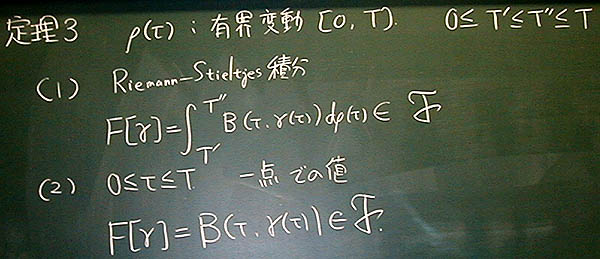 定理3 ρ(τ) : 有界変動 [0, T]. 0≤ T'≤T''≤T
(1) Riemann-Stieltjes 積分
F[γ]=∫_{T'}^{T''} B(τ, γ(τ))dρ(τ) ∈ ℱ
(2) 0≤τ≤T 一点での値
F[γ]=B(τ, γ(τ)) ∈ ℱ.